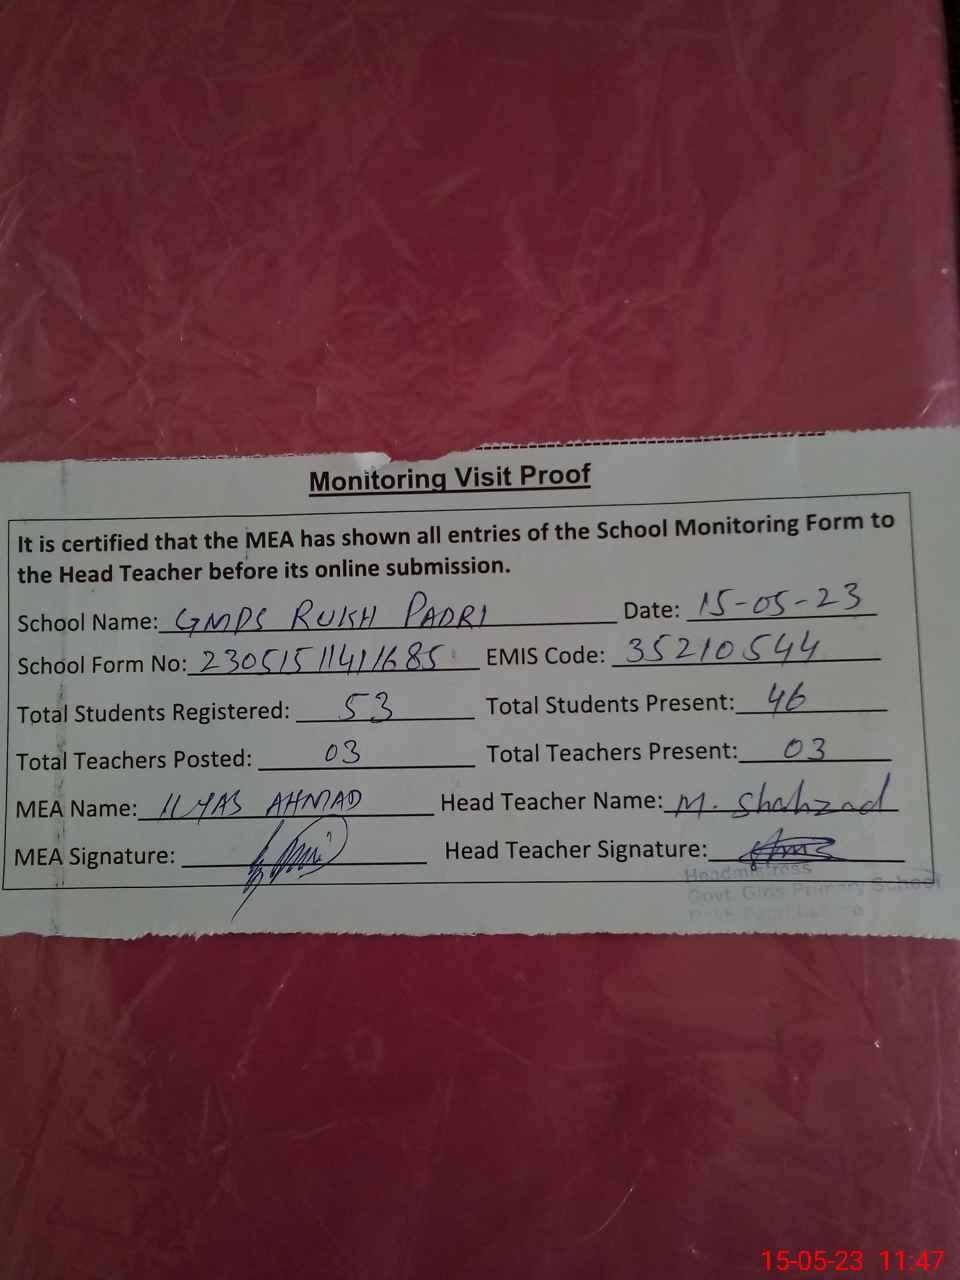 Monitoring Visit Proof
It is certified that the MEA has shown all entries of the School Monitoring Form to
the Head Teacher before its online submission.
School Name: GMPS RUKH PADRI Date: 15-05-23
School Form No: 230515114111685 EMIS Code: 35210544
Total Students Registered: 53 Total Students Present: 46
Total Teachers Posted: 03 Total Teachers Present: 03
MEA Name: ILYAS AHMAD Head Teacher Name: M. Shahzad
MEA Signature: Head Teacher Signature:
Headmistress
Govt. Girls Primary School
15-05-23 11:47